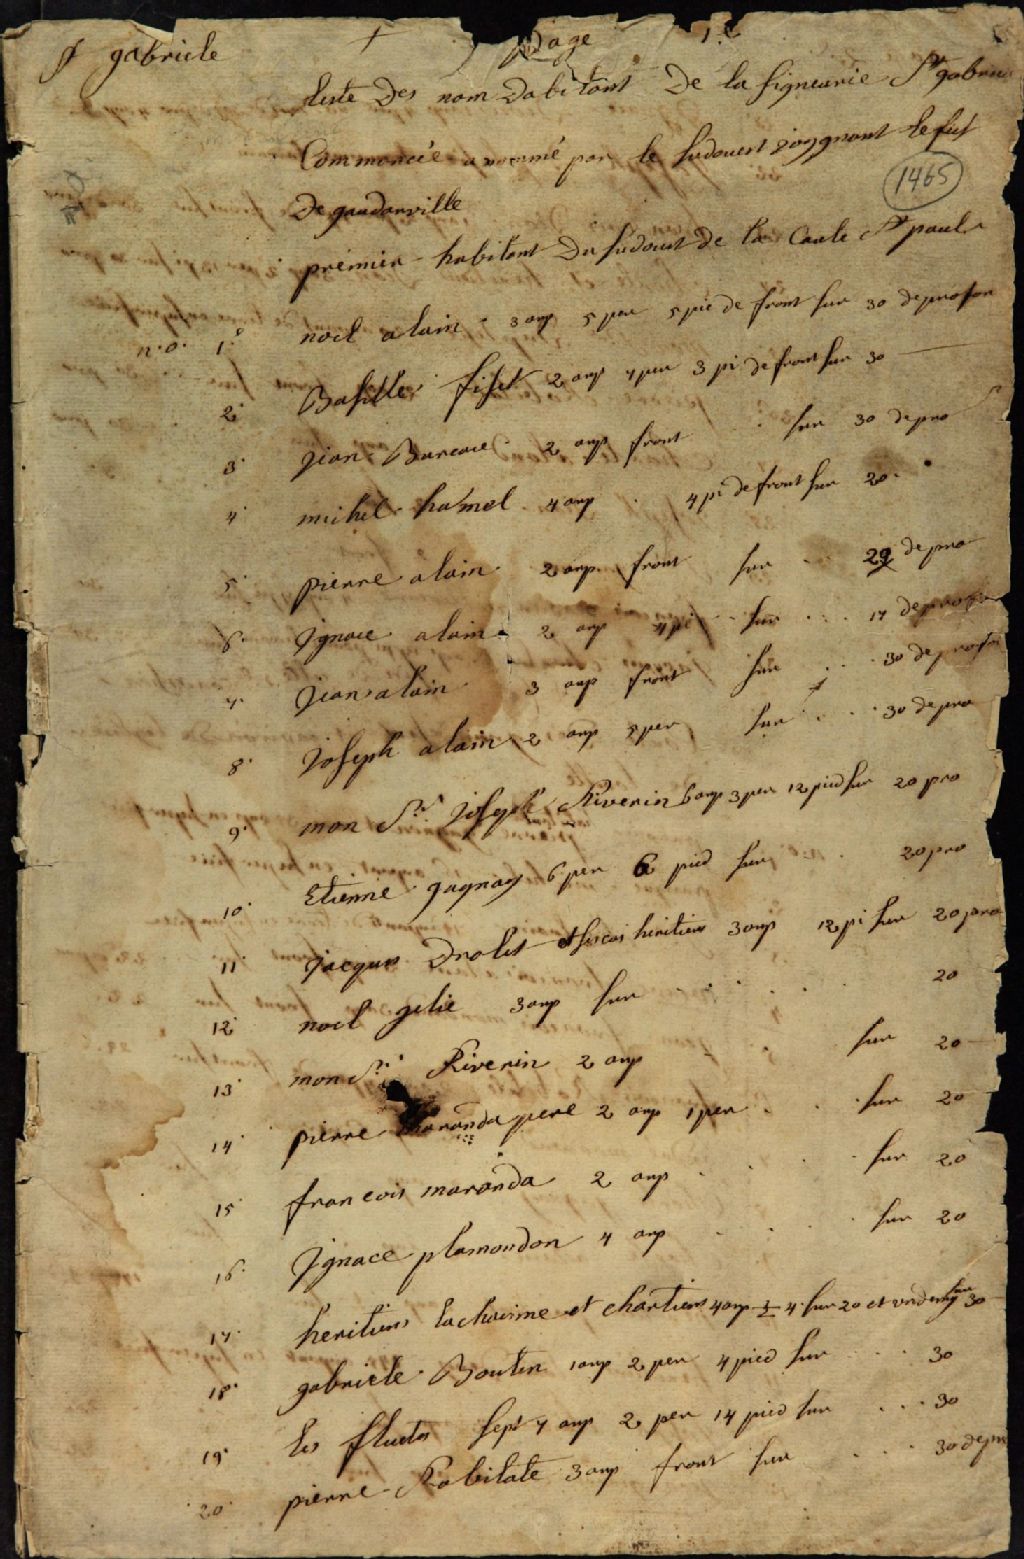 St gabriele + page 1.e
liste Des nom Dabitant De la signeurie St gabrie
Commencée a nommé par le sudouest
1465
De gaudarville
premier habitant Du sudouest de la Coste St paul
n.o. 1. noel alain 3 arp 5 per 5 pié de front sur 30 de profon
2. Basille fiset 2 arp 4 per 3 pi de front sur 30
3. Jian 2 arp front sur 30 de pro
4. mihel hamel 4 arp 4 pi de front sur 20
5. pierre alain 2 arp front sur 29 de pro
6. Jgnace alain 2 arp 4 pi sur 17 de
7. Jian alain 3 arp front sur 30 de
8. Joseph alain 2 arp 2 per sur 30 de pro
9. mon Sr. Joseph Riverin 6 arp 3 per 12 pied sur 20 pro
10. Etienne gagnay 6 per 6 pied sur 20 pro
11. Jacques Drolet et heritiers 3 arp 12 pi sur 20 pro
12. noel gelie 3 arp sur 20
13. mon Sr. Riverin 2 arp sur 20
14. pierre maranda pere 2 arp 1 per sur 20
15. francois maranda 2 arp sur 20
16. Jgnace plamondon 4 arp sur 20
17. heritiers lachaime et chartiers 4 arp 4 sur 20 et 30
18. gabriele Boutin 1 arp 2 per 4 pied sur 30
19. les sept 7 arp 2 per 14 pied sur 30
20. pierre Robitate 3 arp front sur 30 de pro